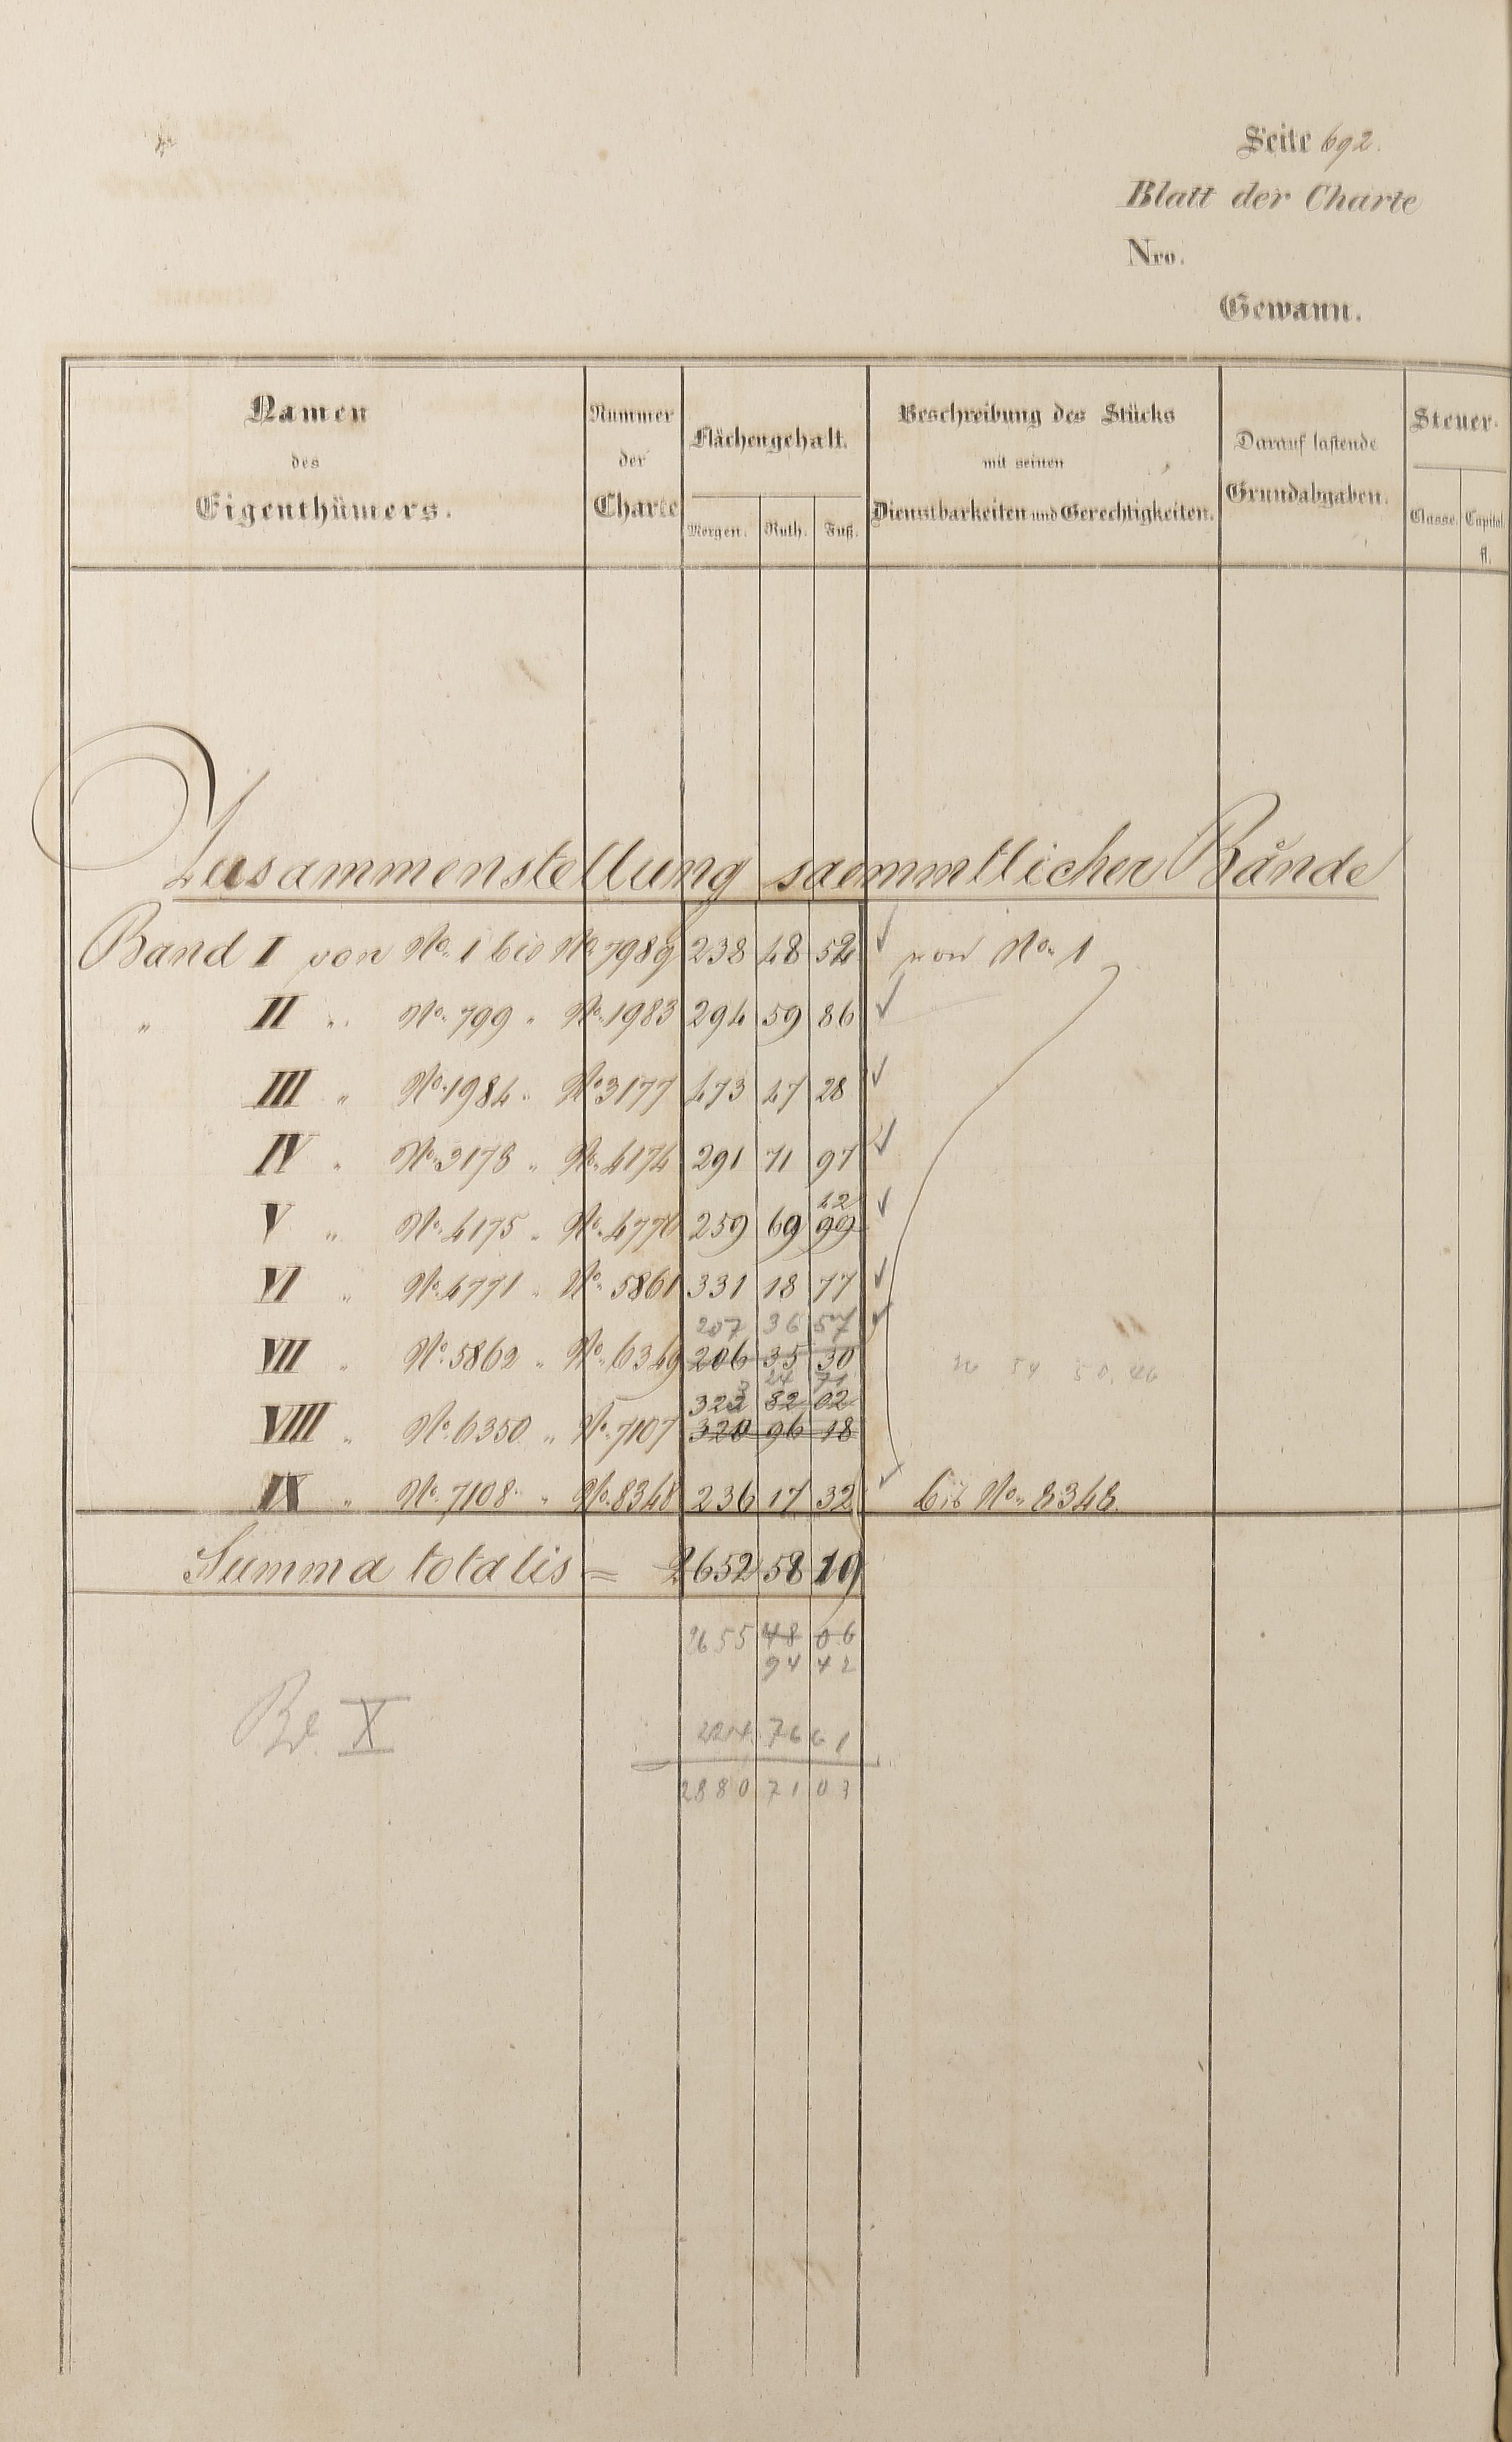 Seite 692.
Blatt der Charte
Nro.
Gewann.
Namen des Eigenthümers.
Nummer der Charte
Flächengehalt.
Morgen. Ruth. Fuß.
Beschreibung des Stücks mit seinen Dienstbarkeiten und Gerechtigkeiten.
Darauf lastende Grundabgaben.
Steuer-
Classe. Capital. fl.
Zusammenstellung saemmtlicher Bände
Band I von No. 1 bis No. 7989 238 48 52 ✓ von No. 1
" II " No. 799 " No. 1983 294 59 86 ✓
III " No. 1984 " No. 3177 473 47 28 ✓
IV " No. 3178 " No. 4174 291 71 97 ✓
42
V " No. 4175 " No. 4770 259 69 99 ✓
VI " No. 4771 " No. 5861 331 18 77 ✓
207 36 57 ✓
VII " No. 5862 " No. 6349 206 35 30
3 24 71
322 82 02
VIII " No. 6350 " No. 7107 320 96 18
IX " No. 7108 " No. 8348 236 17 32 ✓ bis No. 8348.
Summa totalis = 2652 58 19
2655 48 06
94 42
Bd. X 224 76 61
2880 71 03